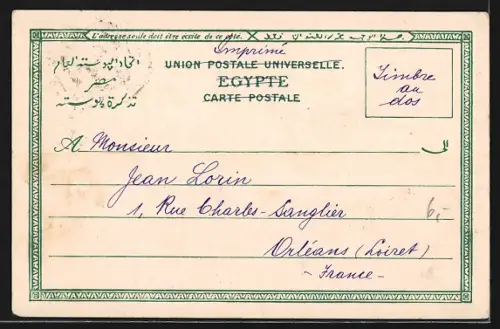 L'adresse seule doit être écrite de ce côté.
Imprimé
UNION POSTALE UNIVERSELLE.
EGYPTE
CARTE POSTALE
اتحاد البوسته العام
مصر
تذكرة بوسته
Timbre
au
dos
A Monsieur
الى
Jean Lorin
1, Rue Charles-Sanglier
6,-
Orléans (Loiret)
- France -